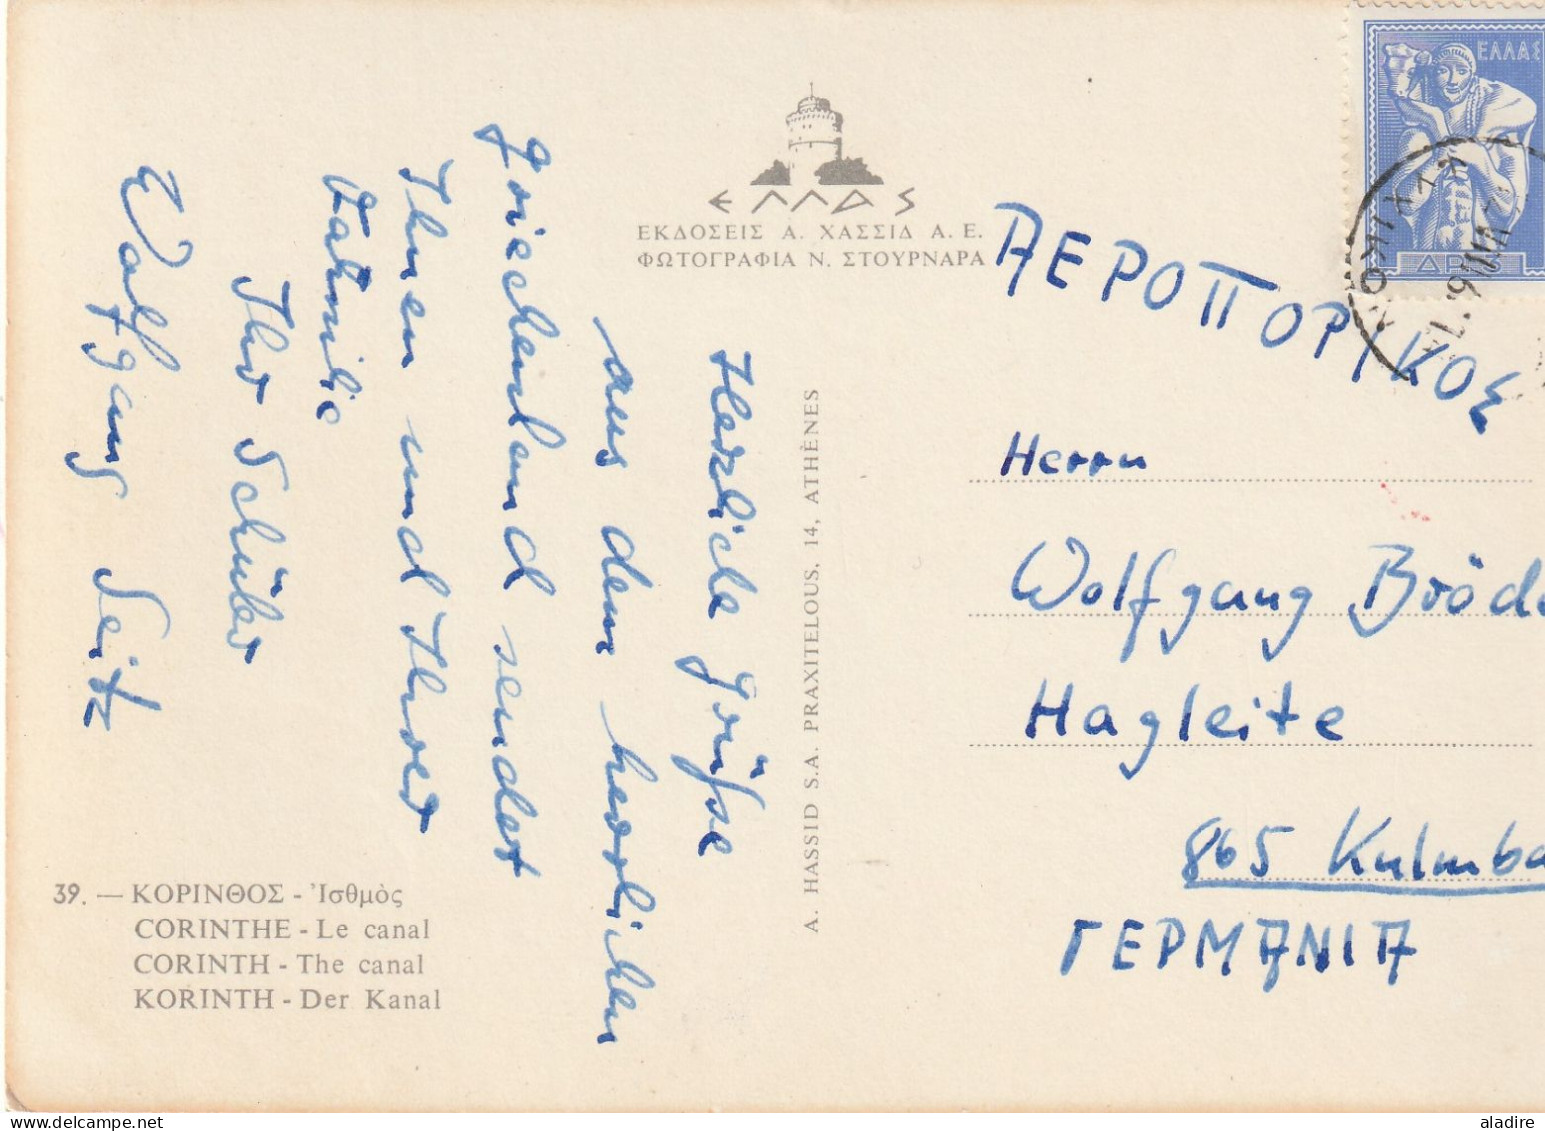 Herzliche Grüße
aus dem herrlichen
Griechenland sendet
Ihnen und Ihrer
Familie
Ihr Schüler
Wolfgang Seitz
39. — ΚΟΡΙΝΘΟΣ - Ἰσθμὸς
CORINTHE - Le canal
CORINTH - The canal
KORINTH - Der Kanal
ΕΛΛΑΣ
ΕΚΔΟΣΕΙΣ Α. ΧΑΣΣΙΔ Α.Ε.
ΦΩΤΟΓΡΑΦΙΑ Ν. ΣΤΟΥΡΝΑΡΑ
A. HASSID S.A. PRAXITELOUS, 14, ATHÈNES
ΕΛΛΑΣ
ΑΕΡΟΠΟΡΙΚΟΣ
Herrn
Wolfgang Bröd
Hagleite
865 Kulmba
ΓΕΡΜΑΝΙΑ
aladire